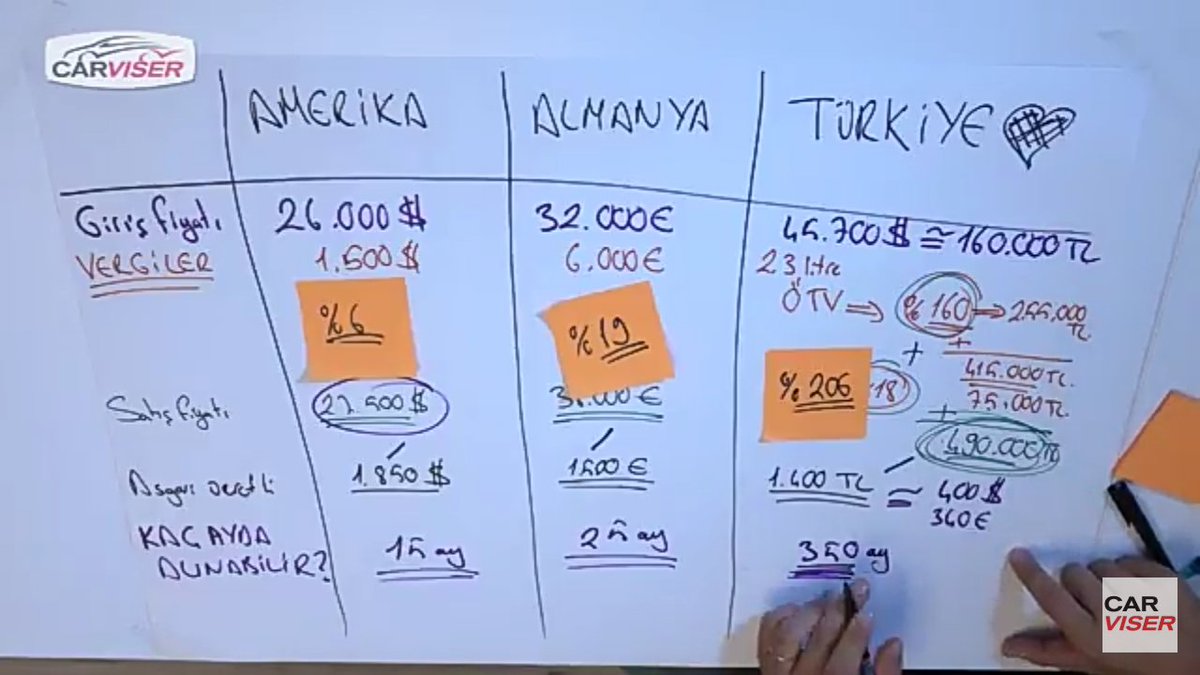 CARVISER
AMERİKA ALMANYA TÜRKİYE
Giriş fiyatı 26.000 $ 32.000 € 45.700 $ ≅ 160.000 TL
VERGİLER 1.500 $ 6.000 € 2.3 litre
ÖTV ⇒ %160 → 255.000 TL
%6 %19 + +
415.000 TL.
%206 18 75.000 TL
+
Satış fiyatı 27.500 $ 38.000 € 490.000 TL
Asgari ücretli 1.850 $ 1500 € 1.400 TL = 400 $
360 €
KAÇ AYDA 15 ay 25 ay 350 ay
ALINABİLİR?
CAR
VISER